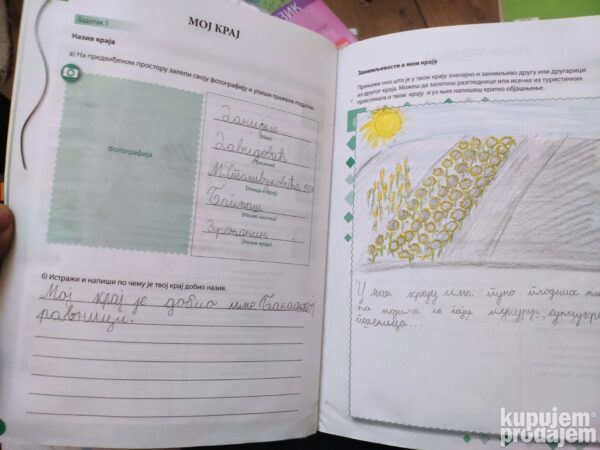 Задатак 1
МОЈ КРАЈ
Назив краја
а) На предвиђеном простору залепи своју фотографију и упиши тражене податке.
Фотографија
(Име)
(Презиме)
(Улица и број)
(Назив насеља)
Зрењанин
(Назив краја)
б) Истражи и напиши по чему је твој крај добио назив.
Мој крај је добио име
равници.
Занимљивости о мом крају
Прикажи оно што је у твом крају значајно и занимљиво другу или другарици
из другог краја. Можеш да залепиш разгледнице или исечке из туристичких
проспеката о твом крају и уз њих напишеш кратко објашњење.
У мом крају има пуно плодних
на којима се гаји
пшеница...
kupujem
prodajem